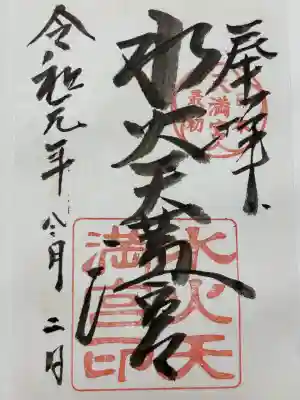 奉拝
天満宮
最初
水火天満宮
水火天
満宮印
令和元年 八月 二日